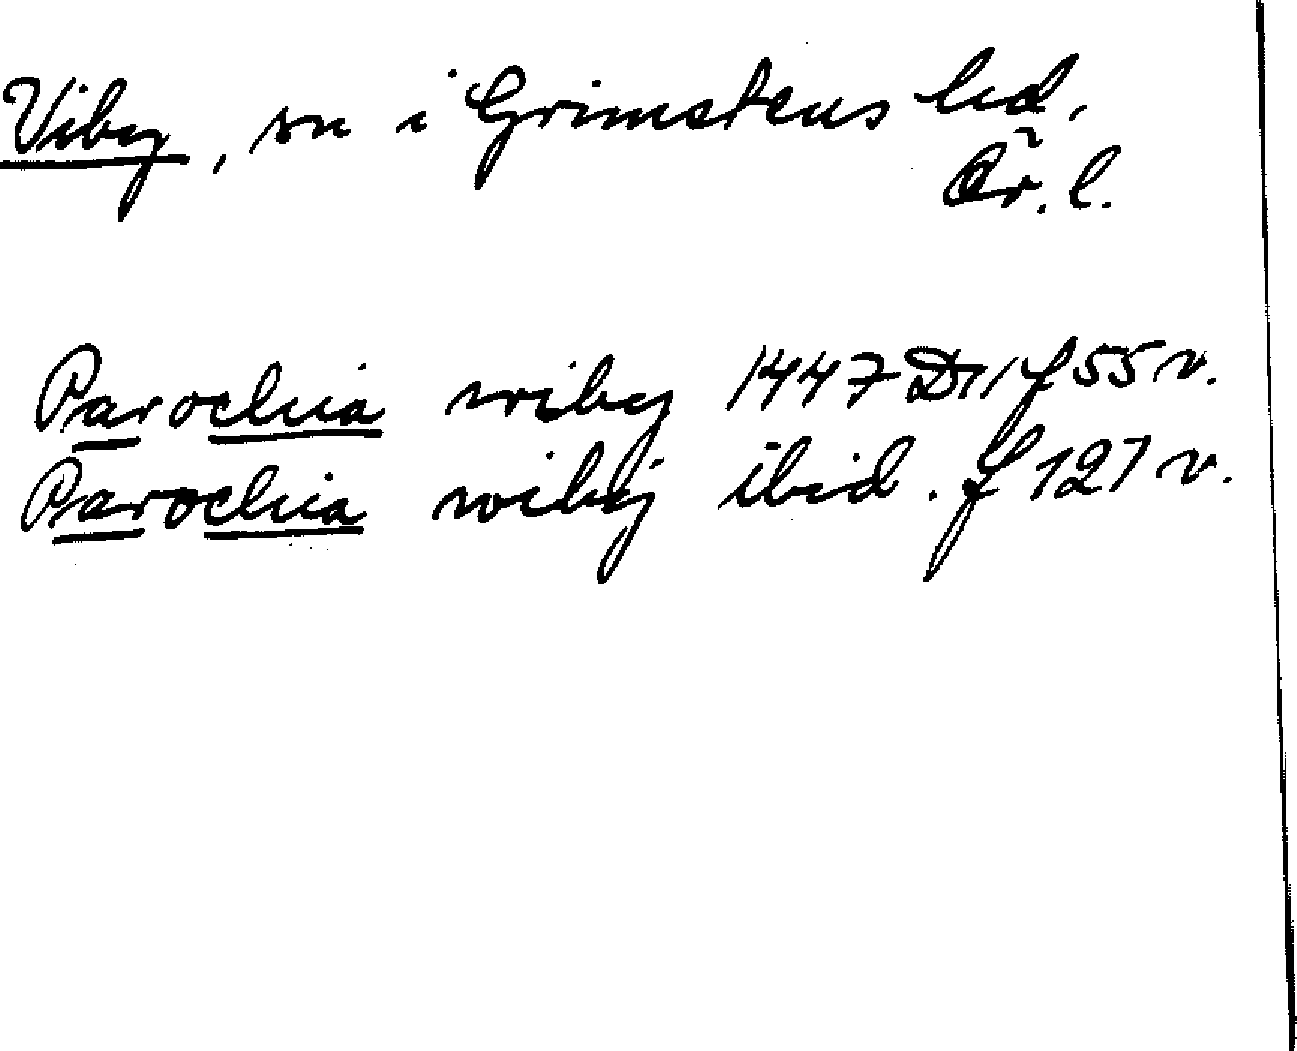 Viby, sn i Grimstens hd,
Ör. l.
Parochia wiby 1447 D11 f 55 v.
Parochia wibÿ ibid. f 127 v.